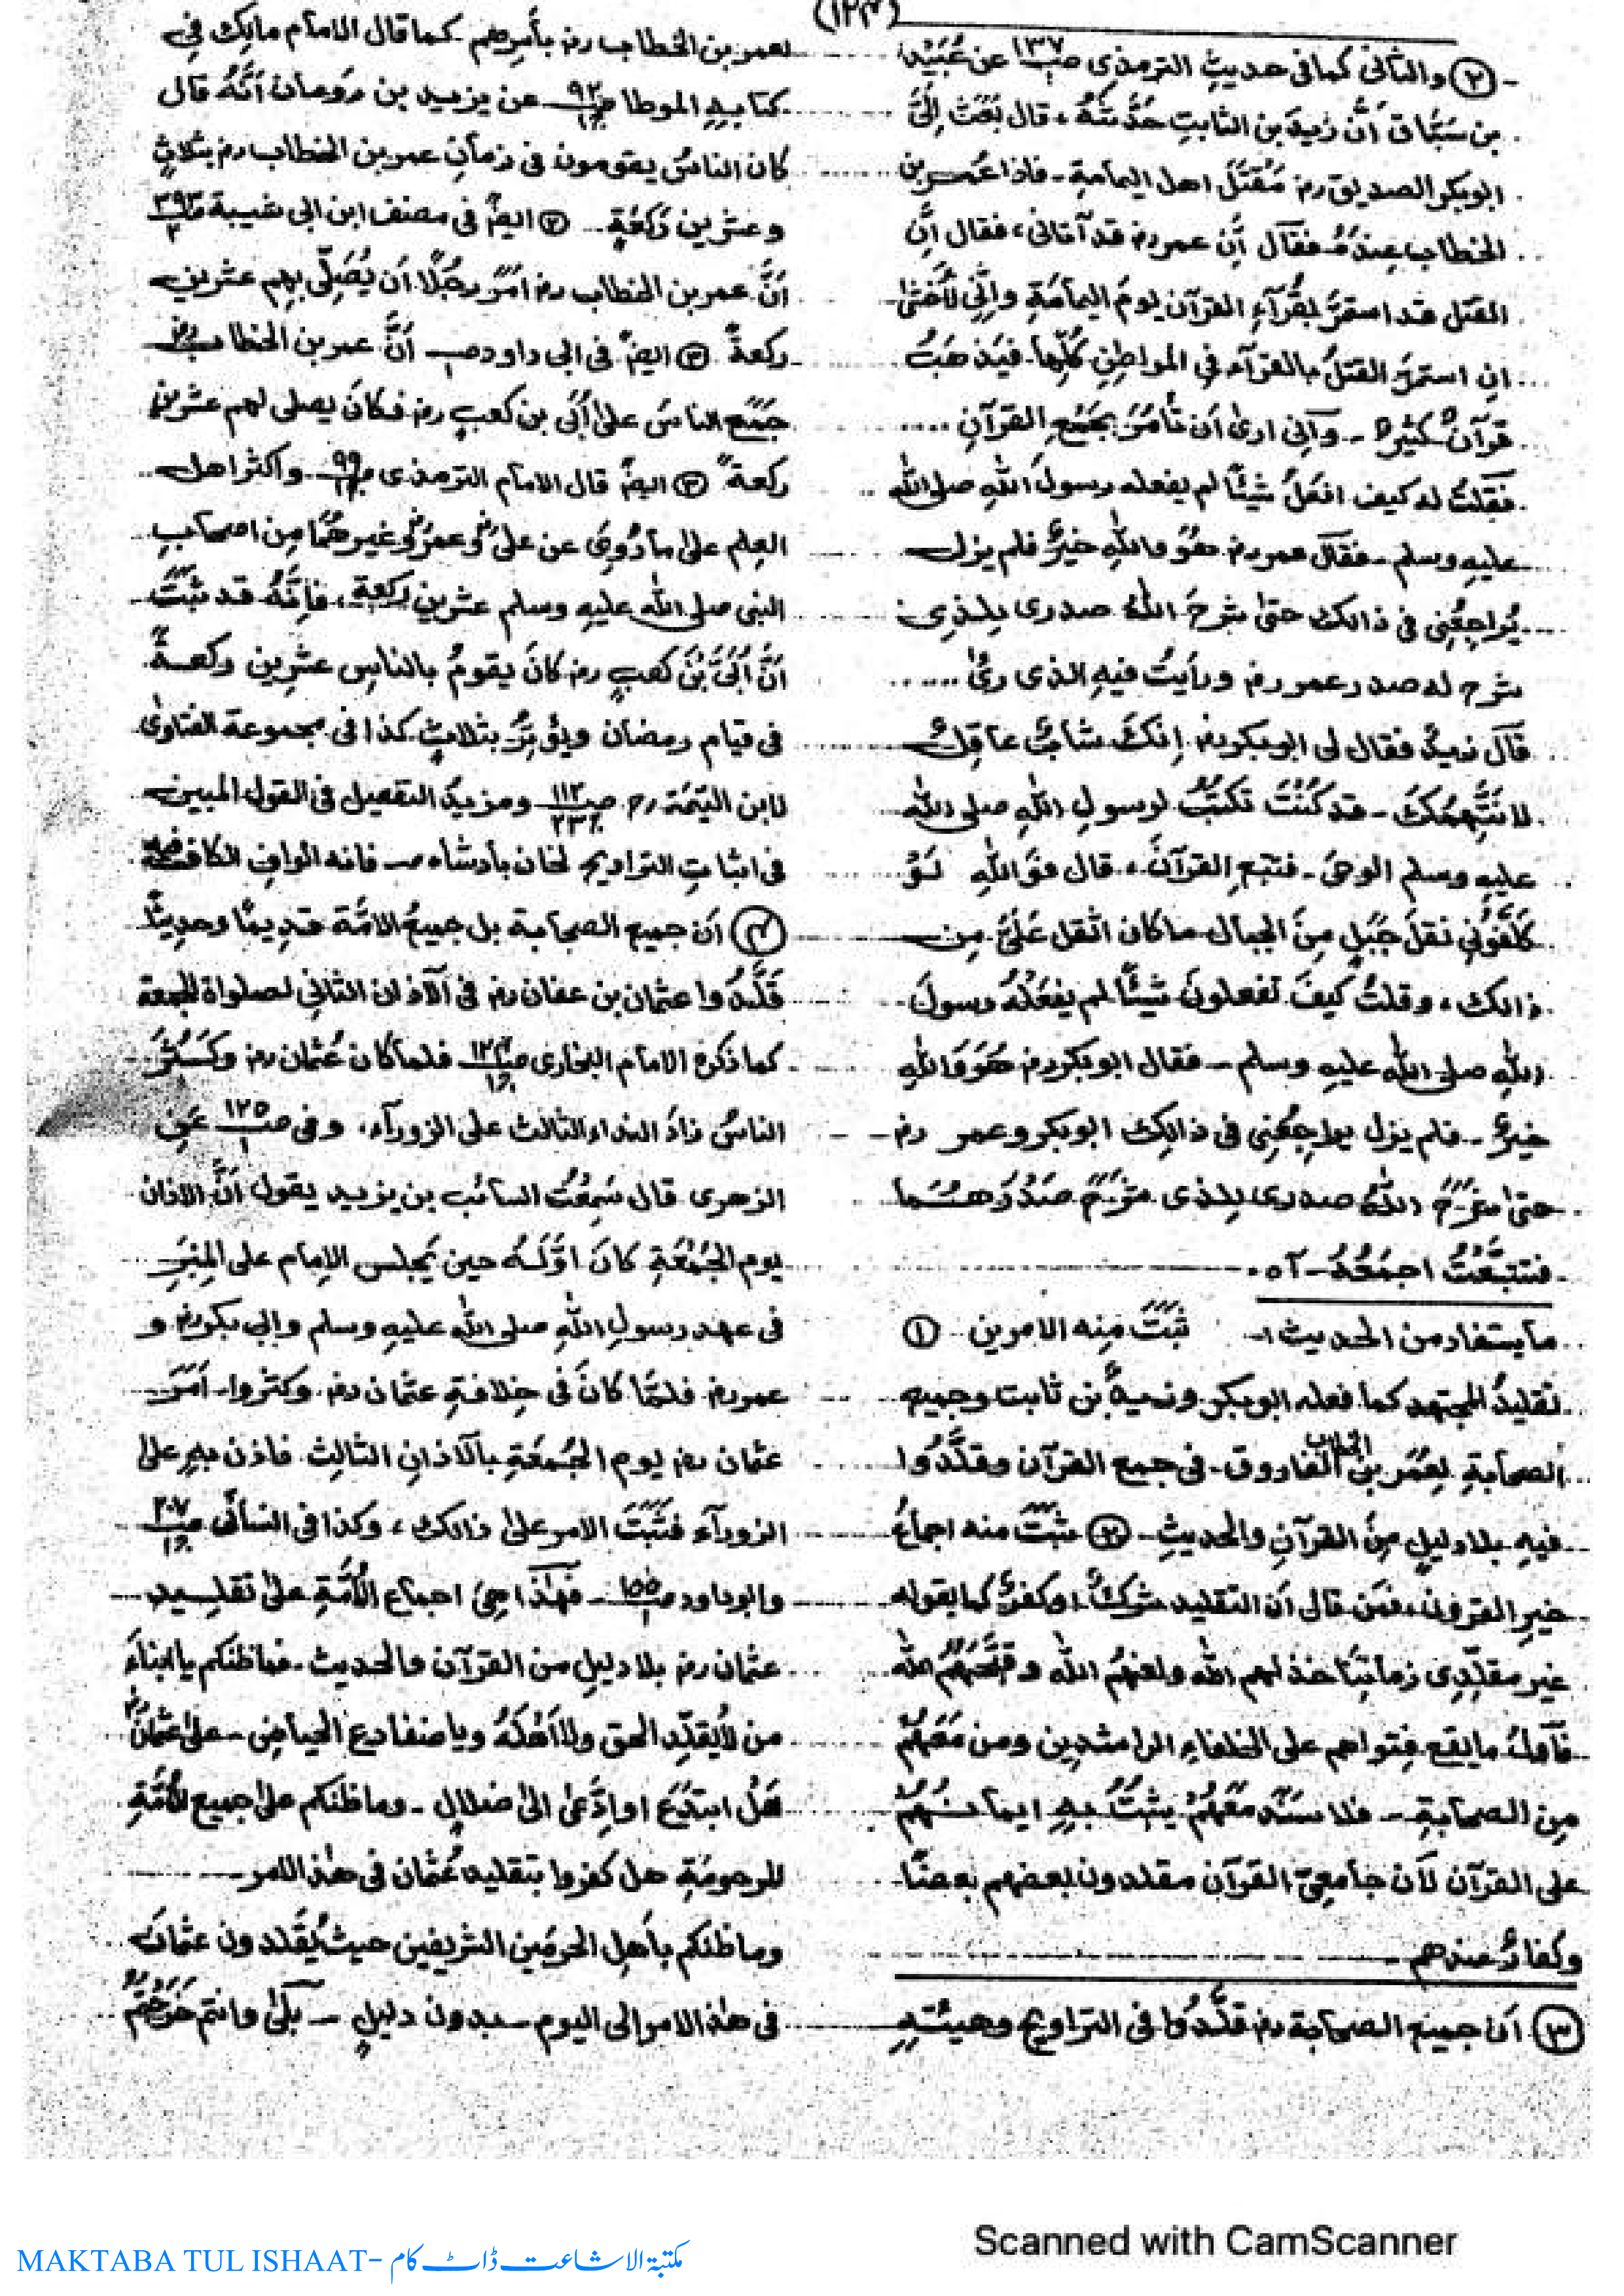 (١٢٤)
② والثانی کما فی حدیثِ الترمذی صـ١٣٧ عن عُبَیْد
بن سَبَّاق أنَّ زیدَ بن الثابتِ حَدَّثَہٗ، قال بَعَثَ اِلَیَّ
ابوبکر الصدیق رض مَقْتَلَ اهل الیمامةِ۔ فاذا عُمَر بن
الخطاب عِندَہٗ فقال أِن عمر رض قد آتانی، فقال اِنَّ
القتل قد استَحَرَّ بقُرّآءِ القرآن یومَ الیمامَةِ واِنِّی لَأَخْشٰی
انِ استمرَّ القتلُ بالقرآء فِی المواطِنِ کُلِّها۔ فیَذهَبُ
قرآنٌ کثیرٌ۔ واَنِّی اریٰ اَن تأمُرَ بجَمْعِ القرآنِ ....
فقلتُ له کیف افعَلُ شیئًا لم یفعله رسولُ اللّٰہِ صلی اللّٰہ
علیهِ وسلم ۔ فقال عمر رض هوَ واللّٰهِ خیرٌ فلم یزل
یُراجِعُنِی فی ذالک حتیٰ شرحَ اللّٰهُ صدری لِلذِی
شرح له صدر عمر رض ورأیتُ فیهِ الذی رئٰ ......
قال زیدٌ فقال لی ابوبکر رض اِنکَ شابٌّ عاقِلٌ
لا نَتَّهِمُکَ ۔ قد کُنْتَ تکتبُ لرسولِ اللّٰهِ صلی اللّٰه
علیهِ وسلم الوحیَ ۔ فتتبع القرآنَ، قال فوَاللّٰهِ لَوْ
کَلَّفُونِی نقلَ جَبَلٍ مِنَ الجبال ما کان اثقل عَلَیَّ مِن
ذالک، وقلتُ کیفَ تفعلونَ شیئًا لم یفعَلْهُ رسولُ
اللّٰهِ صلی اللّٰه علیهِ وسلم ۔ فقال ابوبکر رض هُوَ وَاللّٰهِ
خیرٌ ۔ فلم یزل یراجِعُنِی فی ذالِک ابوبکر وعمر رض
حتیٰ شَرَحَ اللّٰهُ صدری لِلذی شَرَحَ صَدْرَهُمَا
فتتبَّعْتُ اجمَعُهُ ۔ آه
ما یستفاد من الحدیث :۔ ثبَتَ مِنه الامرین ①
تقلیدُ المجتهد کما فعله ابوبکر وزیدُ بن ثابت وجمیع
الصحابةِ لِعُمَر بن الخطاب الفاروق ۔ فی جمع القرآن وقلَّدُوا
فیهِ بلا دلیلٍ مِنَ القرآنِ والحدیثِ ۔ ② ثبَتَ منه اجماعُ
خیرِ القرون، فمَن قال اَن التقلید شرکٌ اوکفرٌ کما یقوله
غیر مقلّدِی زمانِنَا خذلهم اللّٰه ولعنهُم اللّٰه وقبَّحَهُم اللّٰه
فَاَوّلُ ما یقع فتواهم علی الخلفاءِ الراشدِین ومن مَعَهُمْ
مِن الصحابةِ ۔ فلا سَنَدَ مَعَهُمْ یثبُتُ بهِ ایمانُهُمْ
علی القرآن لاَن جامِعِیَ القرآن مقلدون بعضهم بعضًا
وکفارٌ عندهم
③ اَن جمیع الصحابة رض قلَّدُوا فی التراویح وهیئتِهِ
لعمر بن الخطاب رض بأسرِهم ۔ کما قال الامام مالِک فِی
کتابِهِ الموطا صـ٩٢ عن یزید بن رُومان اَنَّهُ قال
کان الناسُ یقومون فی زمانِ عمر بن الخطاب رض بثلاثٍ
وعشرین رَکعَةٍ ۔ ② ایضًا فی مصنف ابن ابی شیبة صـ٣٩٣/٢
اَنَّ عمر بن الخطاب رض اَمَرَ رجُلًا اَن یُصَلِّیَ بِهِم عشرین
رکعةً ③ ایضًا فی ابی داود صـ اَنَّ عمر بن الخطاب رض
جَمَعَ الناسَ علیٰ اُبَیِّ بن کعبٍ رض فکانَ یصلی لهم عشرین
رکعةً ④ ایضًا قال الامام الترمذی صـ٩٩ واکثر اهل
العِلم علیٰ ما رُوِیَ عن علیؓ وعمرؓ وغیرِهُمَا مِن اصحابِ
النبی صلی اللّٰه علیهِ وسلم عشرین رکعة، فاِنَّهُ قد ثبَتَ
اَنَّ اُبَیَّ بْنَ کعبٍ رض کانَ یقومُ بالناسِ عشرِین رکعةً
فی قیام رمضان ویُوتِرُ بثلاثٍ کذا فی مجموعة الفتاویٰ
لابن الیتمَة رح صـ١١٢/٢٣ ومزیدُ التفصیل فی القول المبین
فی اثباتِ التراویح لخان بادشاه ۔ فانه الوافی الکافی
④ اَن جمیع الصحابة بل جمیعُ الامَّة قدِیمًا وحدِیثًا
قَلَّدُوا عثمان بن عفان رض فی الآذان الثانِی لصلواة الجمعة
کما ذکره الامام البخاری صـ١٢٤ فلما کان عُثمان رض وکَثُرَ
الناسُ زادَ النداء الثالث علی الزورآء، وفی صـ١٢٥/١ عَن
الزهری قال سَمِعْتُ السائب بن یزید یقول اَنَّ الاذان
یوم الجُمُعَةِ کانَ اوَّلَهُ حین یَجلس الاِمام علی المِنبَرِ
فی عهد رسولِ اللّٰهِ صلی اللّٰه علیهِ وسلم وابی بکر رض و
عمر رض فلمَّا کانَ فی خِلافةِ عثمان رض وکثروا ۔ اَمَرَ
عثمان رض یوم الجُمعَةِ بالآذانِ الثالِث فاذن بهِ علی
الزورآء فثَبَتَ الامر علیٰ ذالک، وکذا فی النسائی صـ٢٠٧
وابوداود صـ١٥٥/١ ۔ فهٰذا هِیَ اجماع الاُمَّةِ علیٰ تقلید
عثمان رض بلا دلیلٍ من القرآن والحدیث ۔ فما ظنکم یا ابناءَ
من لا یُقلِّد الحق ولا اَهْلَهُ ویا ضفادع الحیاض ۔ علیٰ عثمانؓ
هَلْ ابتدَعَ او اِدَّعیٰ الیٰ ضلالٍ ۔ وما ظنکم علیٰ جمیع الاُمَّةِ
المرحومَةِ هل کفروا بتقلید عُثمان فی هٰذ الامر
وما ظنکم بأهل الحرمَین الشریفین حیث یُقَلدون عثمانَ
فی هٰذ الامر الی الیوم ۔ بدون دلیلٍ ۔ بَلیٰ وانتم
Scanned with CamScanner
MAKTABA TUL ISHAAT- مکتبة الاشاعت ڈاٹ کام